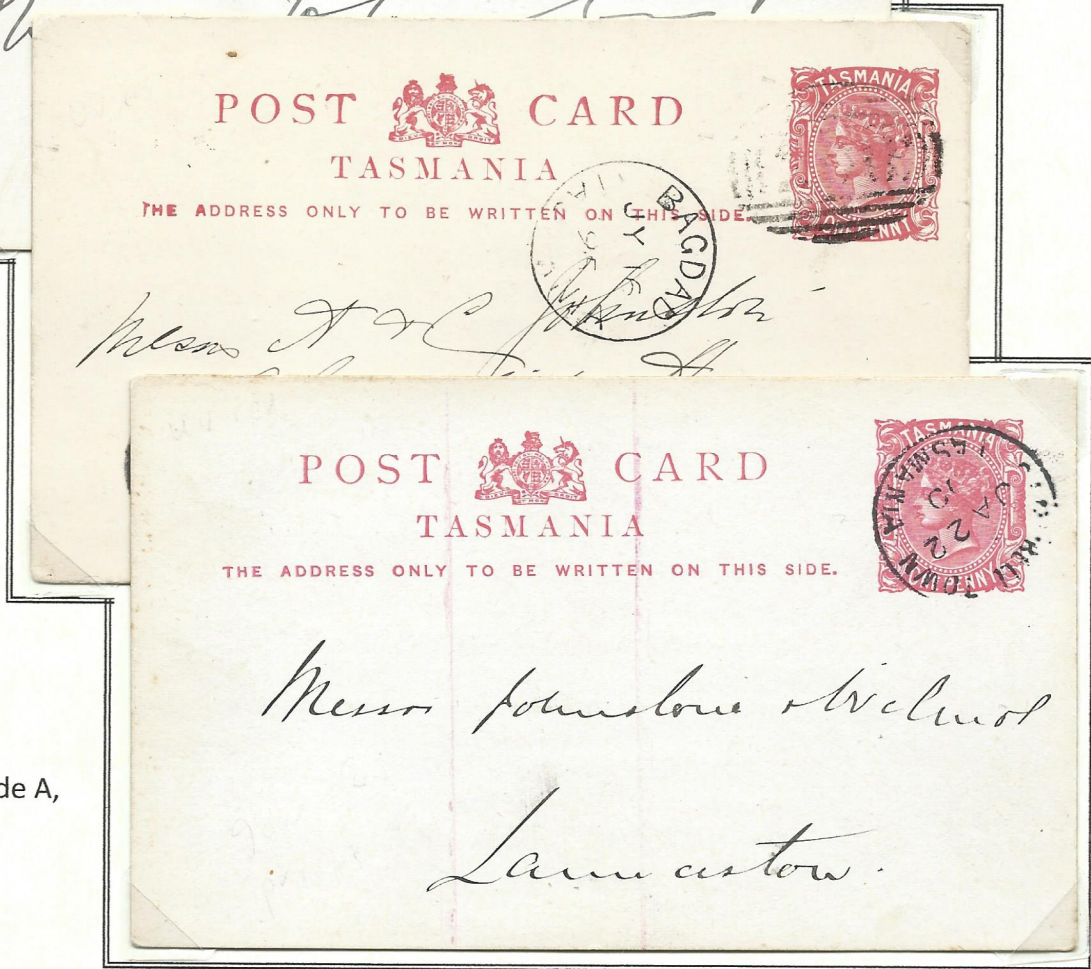 POST CARD
TASMANIA
THE ADDRESS ONLY TO BE WRITTEN ON THIS SIDE.
TASMANIA
ONE PENNY
BAGDAD
JY
Messrs A & C Johnston
POST CARD
TASMANIA
THE ADDRESS ONLY TO BE WRITTEN ON THIS SIDE.
TASMANIA
ONE PENNY
TOWN
TASMANIA
JA 22
Messrs Johnstone & Wilmot
Launceston.
de A,